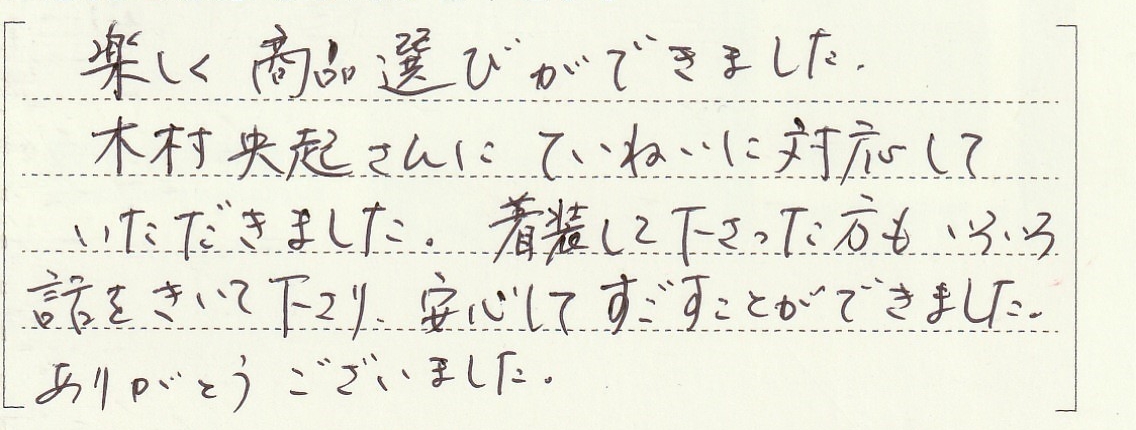 楽しく商品選びができました.
木村央起さんにていねいに対応して
いただきました。着装して下さった方もいろいろ
話をきいて下さり、安心してすごすことができました。
ありがとうございました。